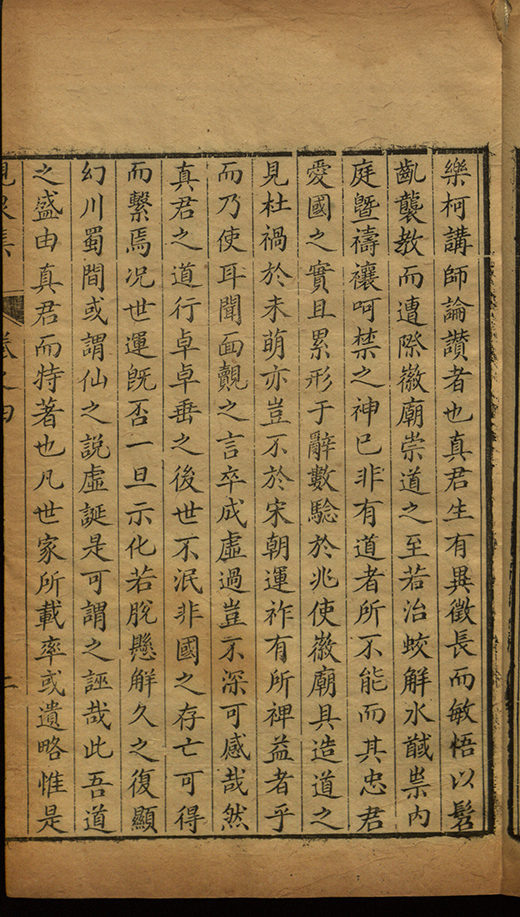 樂柯講師論讃者也真君生有異徵長而敏悟以髫
齓襲教而遭際徽廟崇道之至若治蛟觧水馘祟内
庭曁禱禳呵禁之神已非有道者所不能而其忠君
愛國之實且累形于辭數騐於兆使徽廟具造道之
見杜禍於未萌亦豈不於宋朝運祚有所裨益者乎
而乃使耳聞面覿之言卒成虛過豈不深可感哉然
真君之道行卓卓垂之後世不泯非國之存亡可得
而繫焉况世運旣否一旦示化若脫懸觧久之復顯
幻川蜀間或謂仙之說虛誕是可謂之誣哉此吾道
之盛由真君而特著也凡世家所載率或遺略惟是
峴泉集 卷之四 二